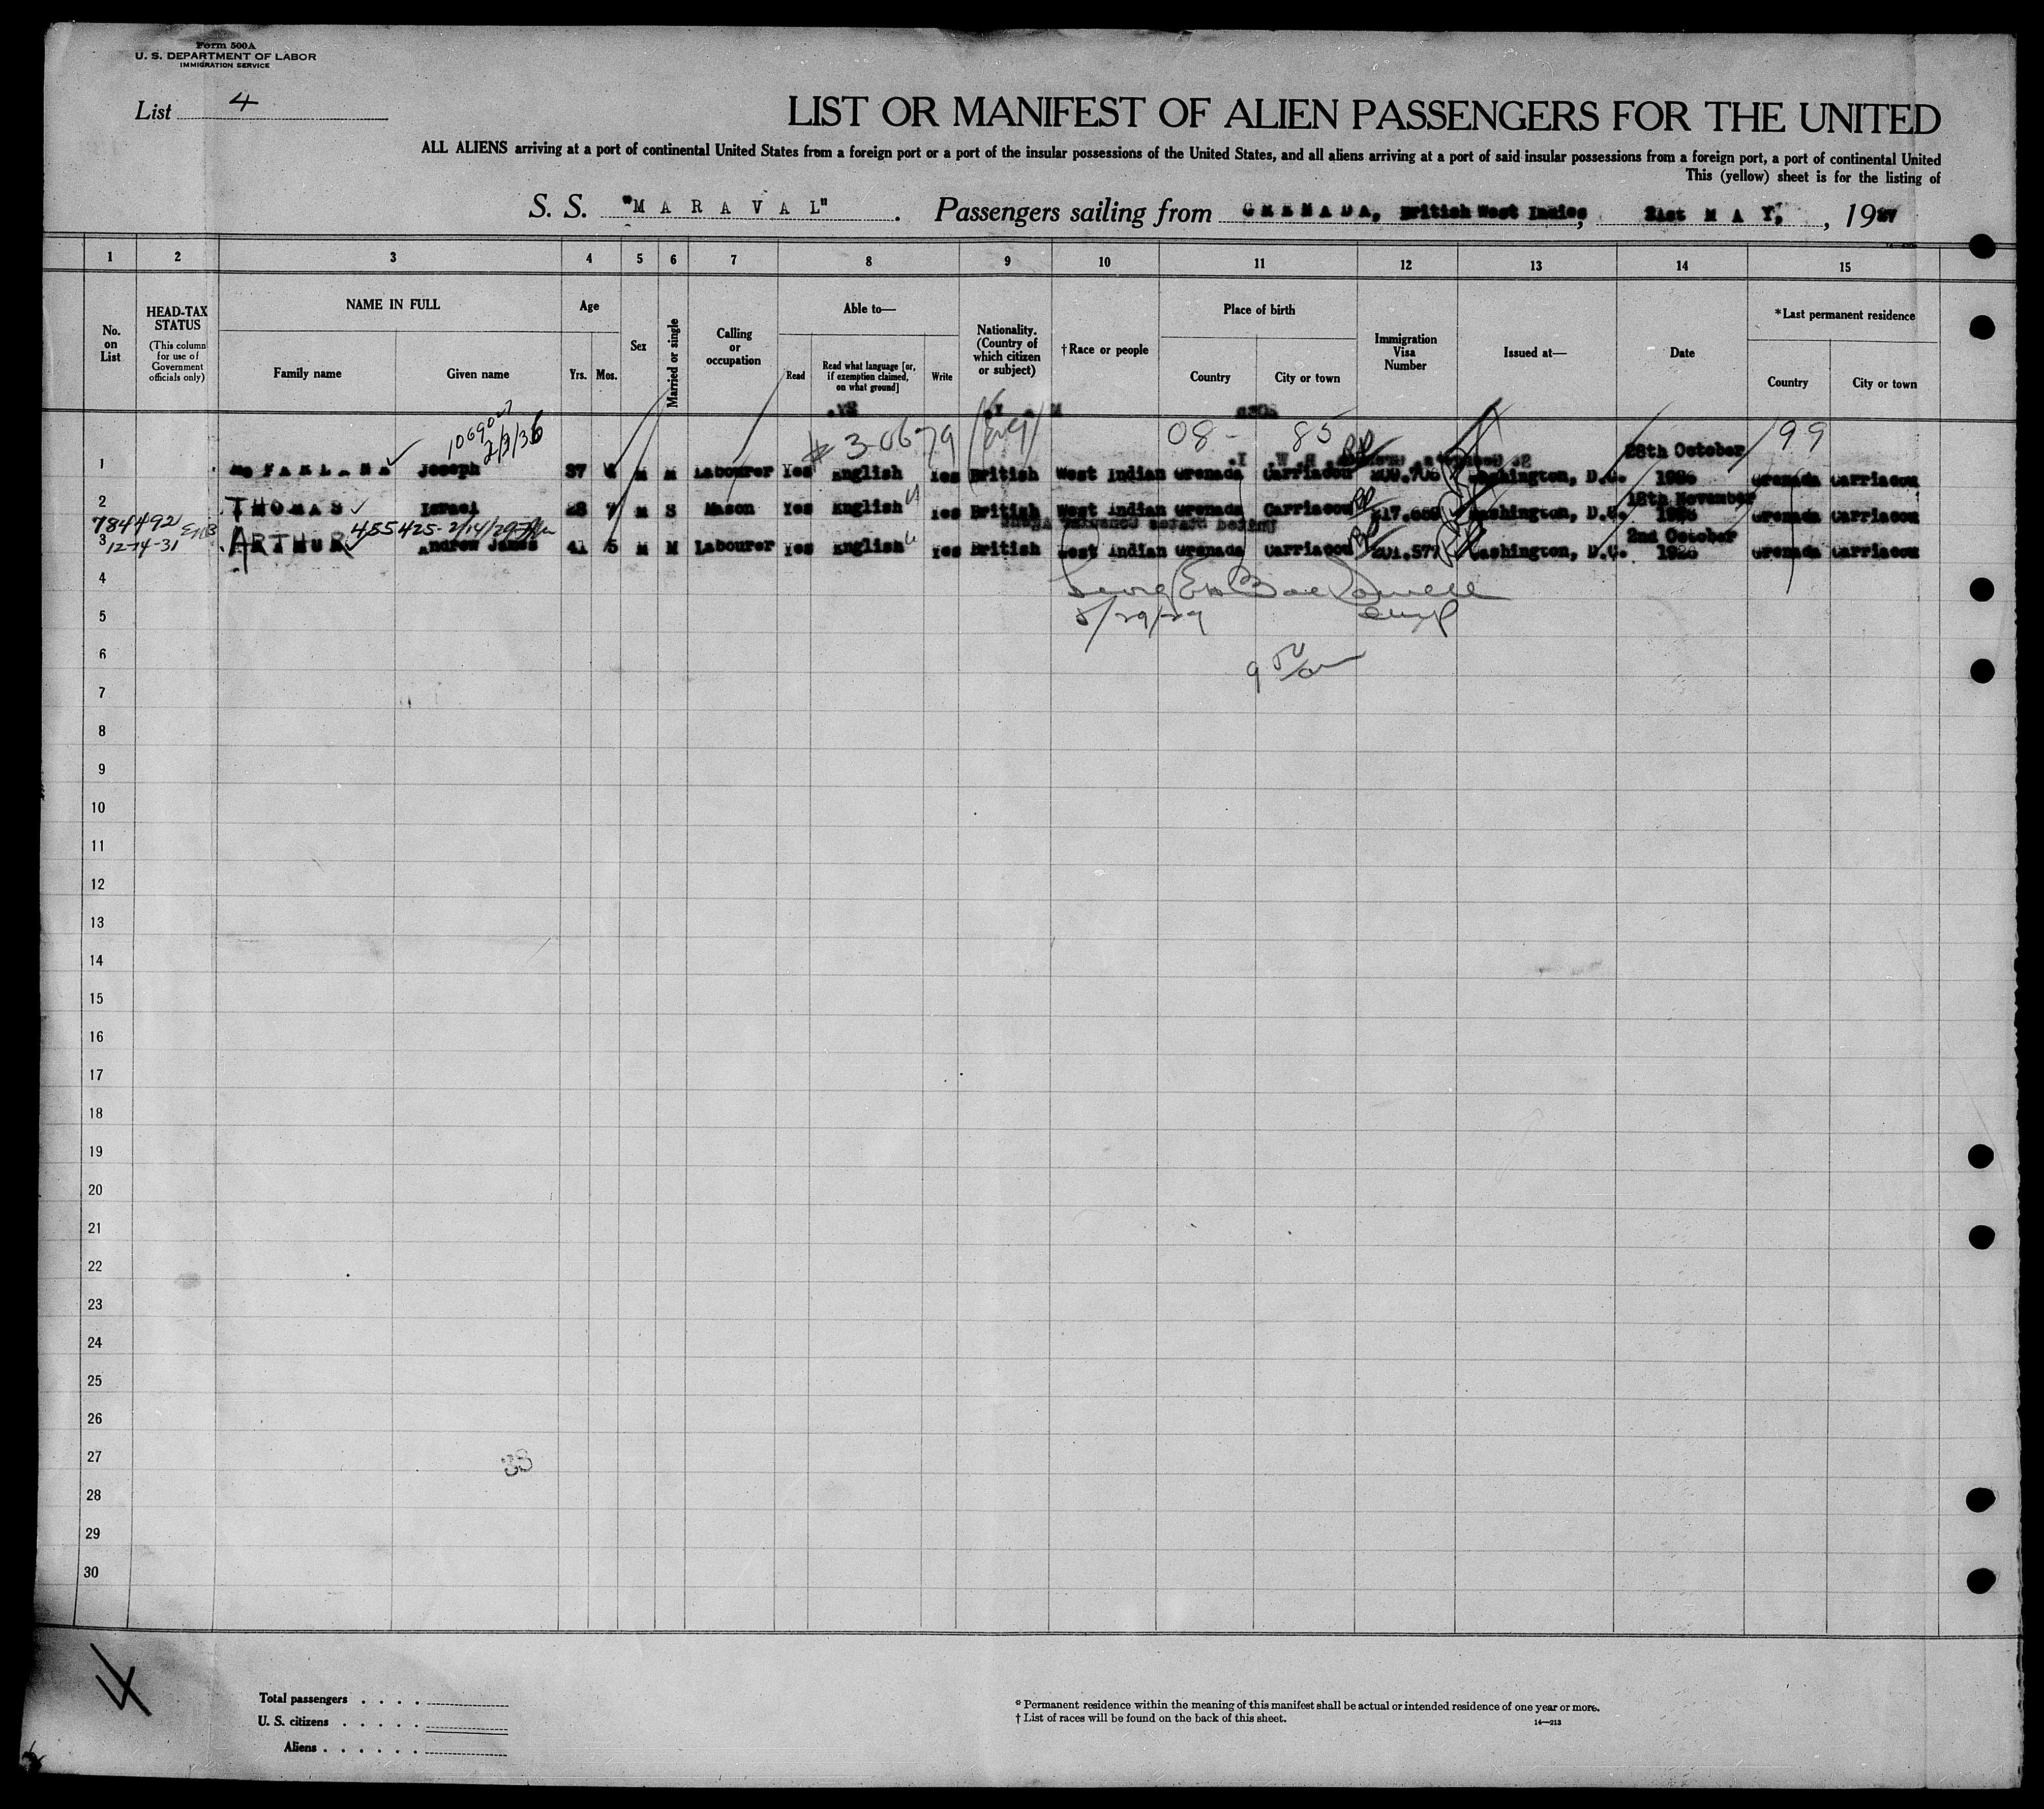 Form 500A
U. S. DEPARTMENT OF LABOR
IMMIGRATION SERVICE
List 4
LIST OR MANIFEST OF ALIEN PASSENGERS FOR THE UNITED
ALL ALIENS arriving at a port of continental United States from a foreign port or a port of the insular possessions of the United States, and all aliens arriving at a port of said insular possessions from a foreign port, a port of continental United
This (yellow) sheet is for the listing of
S. S. "M A R A V A L". Passengers sailing from GRENADA, British West Indies, 21st M A Y, , 1927
1 2 3 4 5 6 7 8 9 10 11 12 13 14 15
No. on List
HEAD-TAX STATUS
(This column for use of Government officials only)
NAME IN FULL
Family name Given name
Age
Yrs. Mos.
Sex
Married or single
Calling or occupation
Able to—
Read
Read what language [or, if exemption claimed, on what ground]
Write
Nationality. (Country of which citizen or subject)
†Race or people
Place of birth
Country City or town
Immigration Visa Number
Issued at—
Date
*Last permanent residence
Country City or town
2/3/36
# 3-0679 (Eng) 08- 85 99
1 Mc FARLANE Joseph 37 M M Labourer Yes English Yes British West Indian Grenada Carriacou Washington, D.C. 28th October 1926 Grenada Carriacou
2 THOMAS Israel 28 7 M S Mason Yes English Yes British West Indian Grenada Carriacou Washington, D.C. 18th November 1926 Grenada Carriacou
784492
12-14-31
455425-2/14/29
3 ARTHUR Andrew James 41 5 M M Labourer Yes English Yes British West Indian Grenada Carriacou 201.577 Washington, D.C. 2nd October 1926 Grenada Carriacou
4
5
6
7
8
9
10
11
12
13
14
15
16
17
18
19
20
21
22
23
24
25
26
27
33
28
29
30
4
Total passengers . . . .
U. S. citizens . . . . .
Aliens . . . . . .
* Permanent residence within the meaning of this manifest shall be actual or intended residence of one year or more.
† List of races will be found on the back of this sheet.
14—213